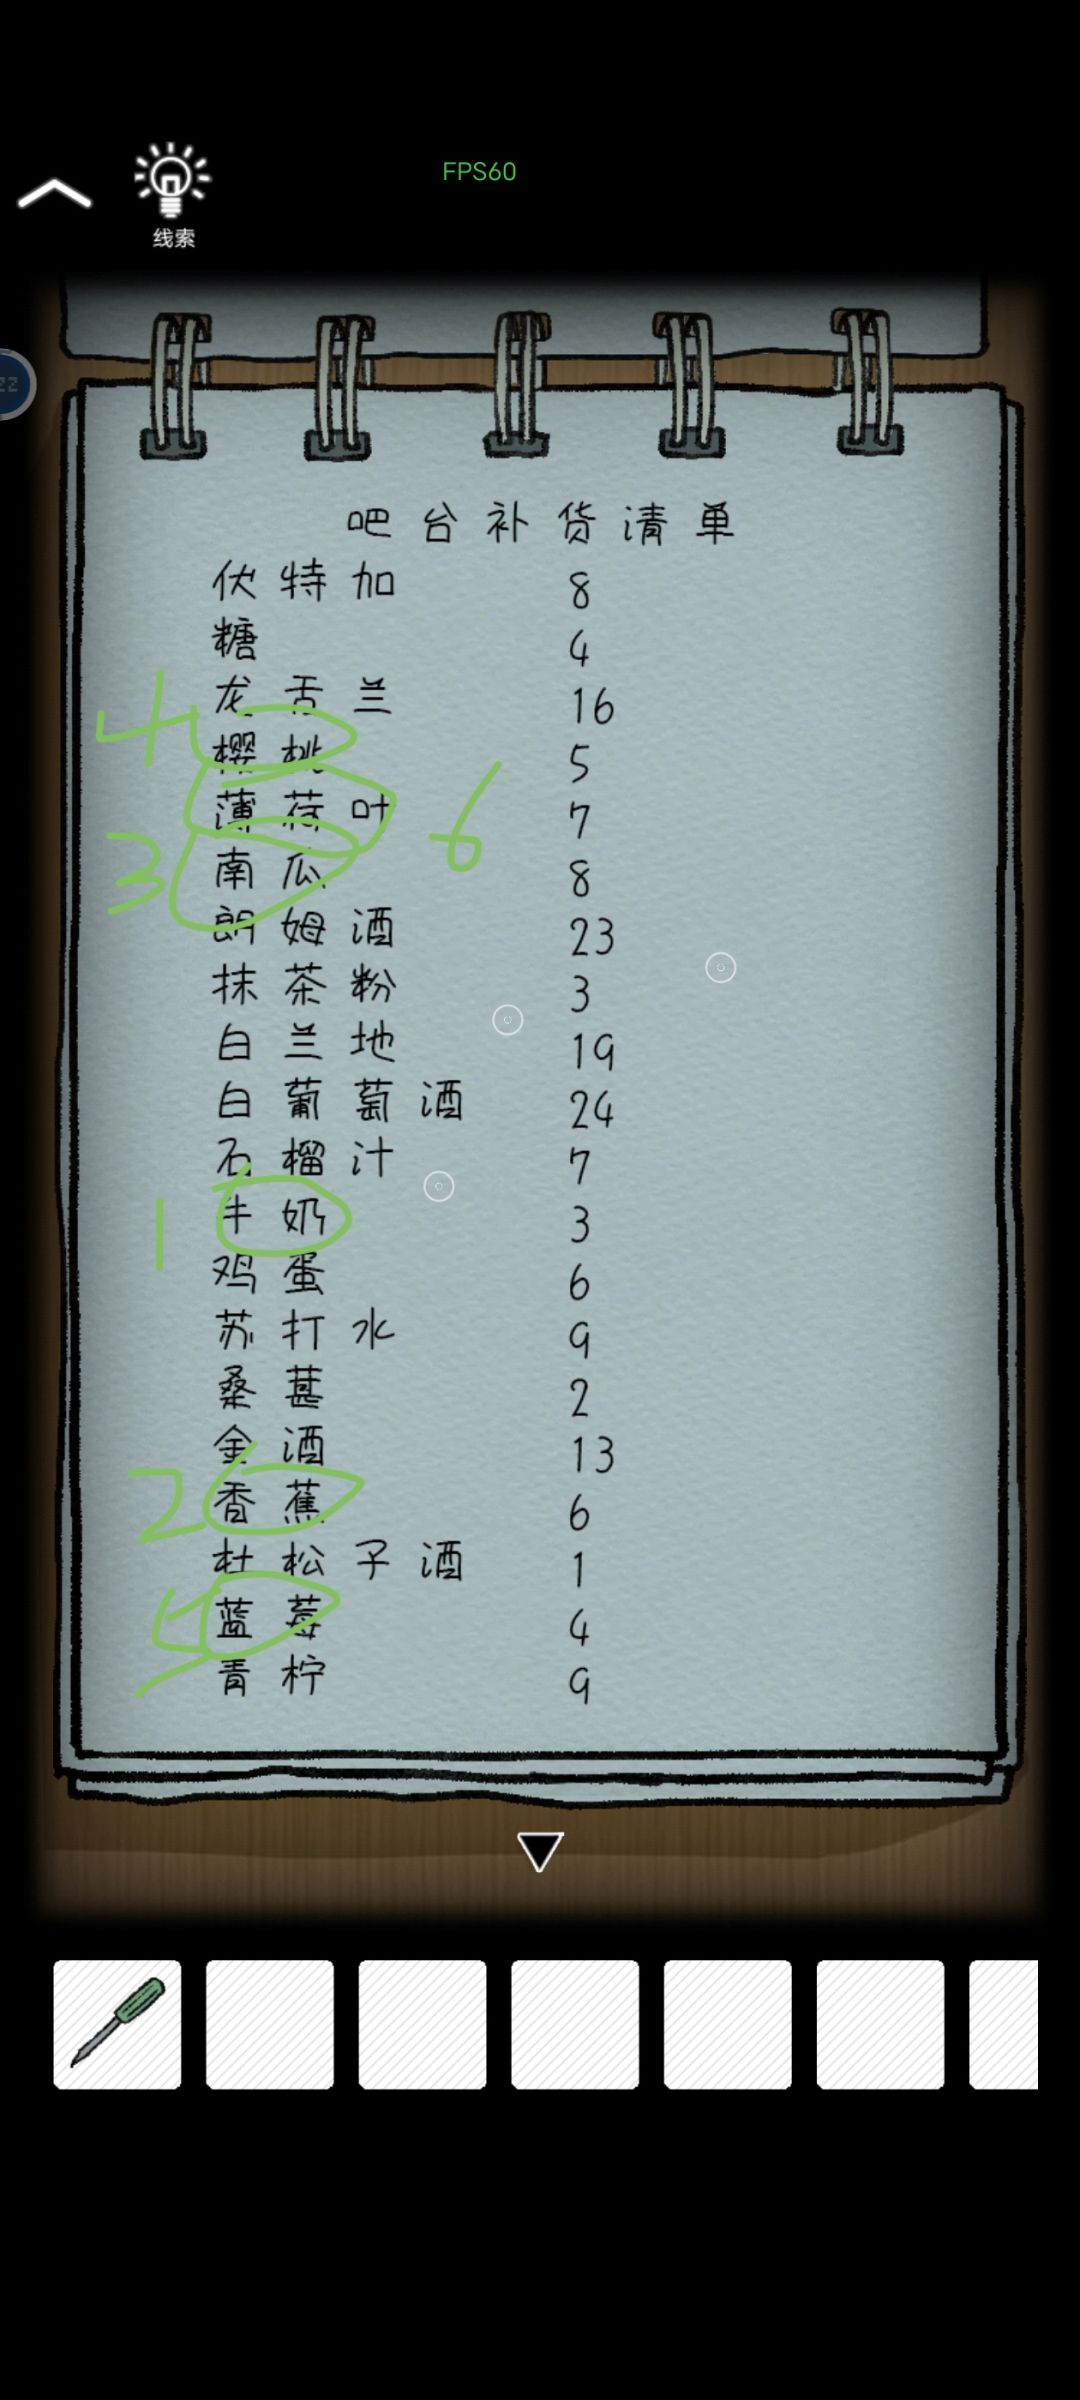 FPS60
线索
zz
吧台补货清单
伏特加 8
糖 4
龙舌兰 16
4 樱桃 5
薄荷叶 6 7
3 南瓜 8
朗姆酒 23
抹茶粉 3
白兰地 19
白葡萄酒 24
石榴汁 7
1 牛奶 3
鸡蛋 6
苏打水 9
桑葚 2
金酒 13
2 香蕉 6
杜松子酒 1
5 蓝莓 4
青柠 9